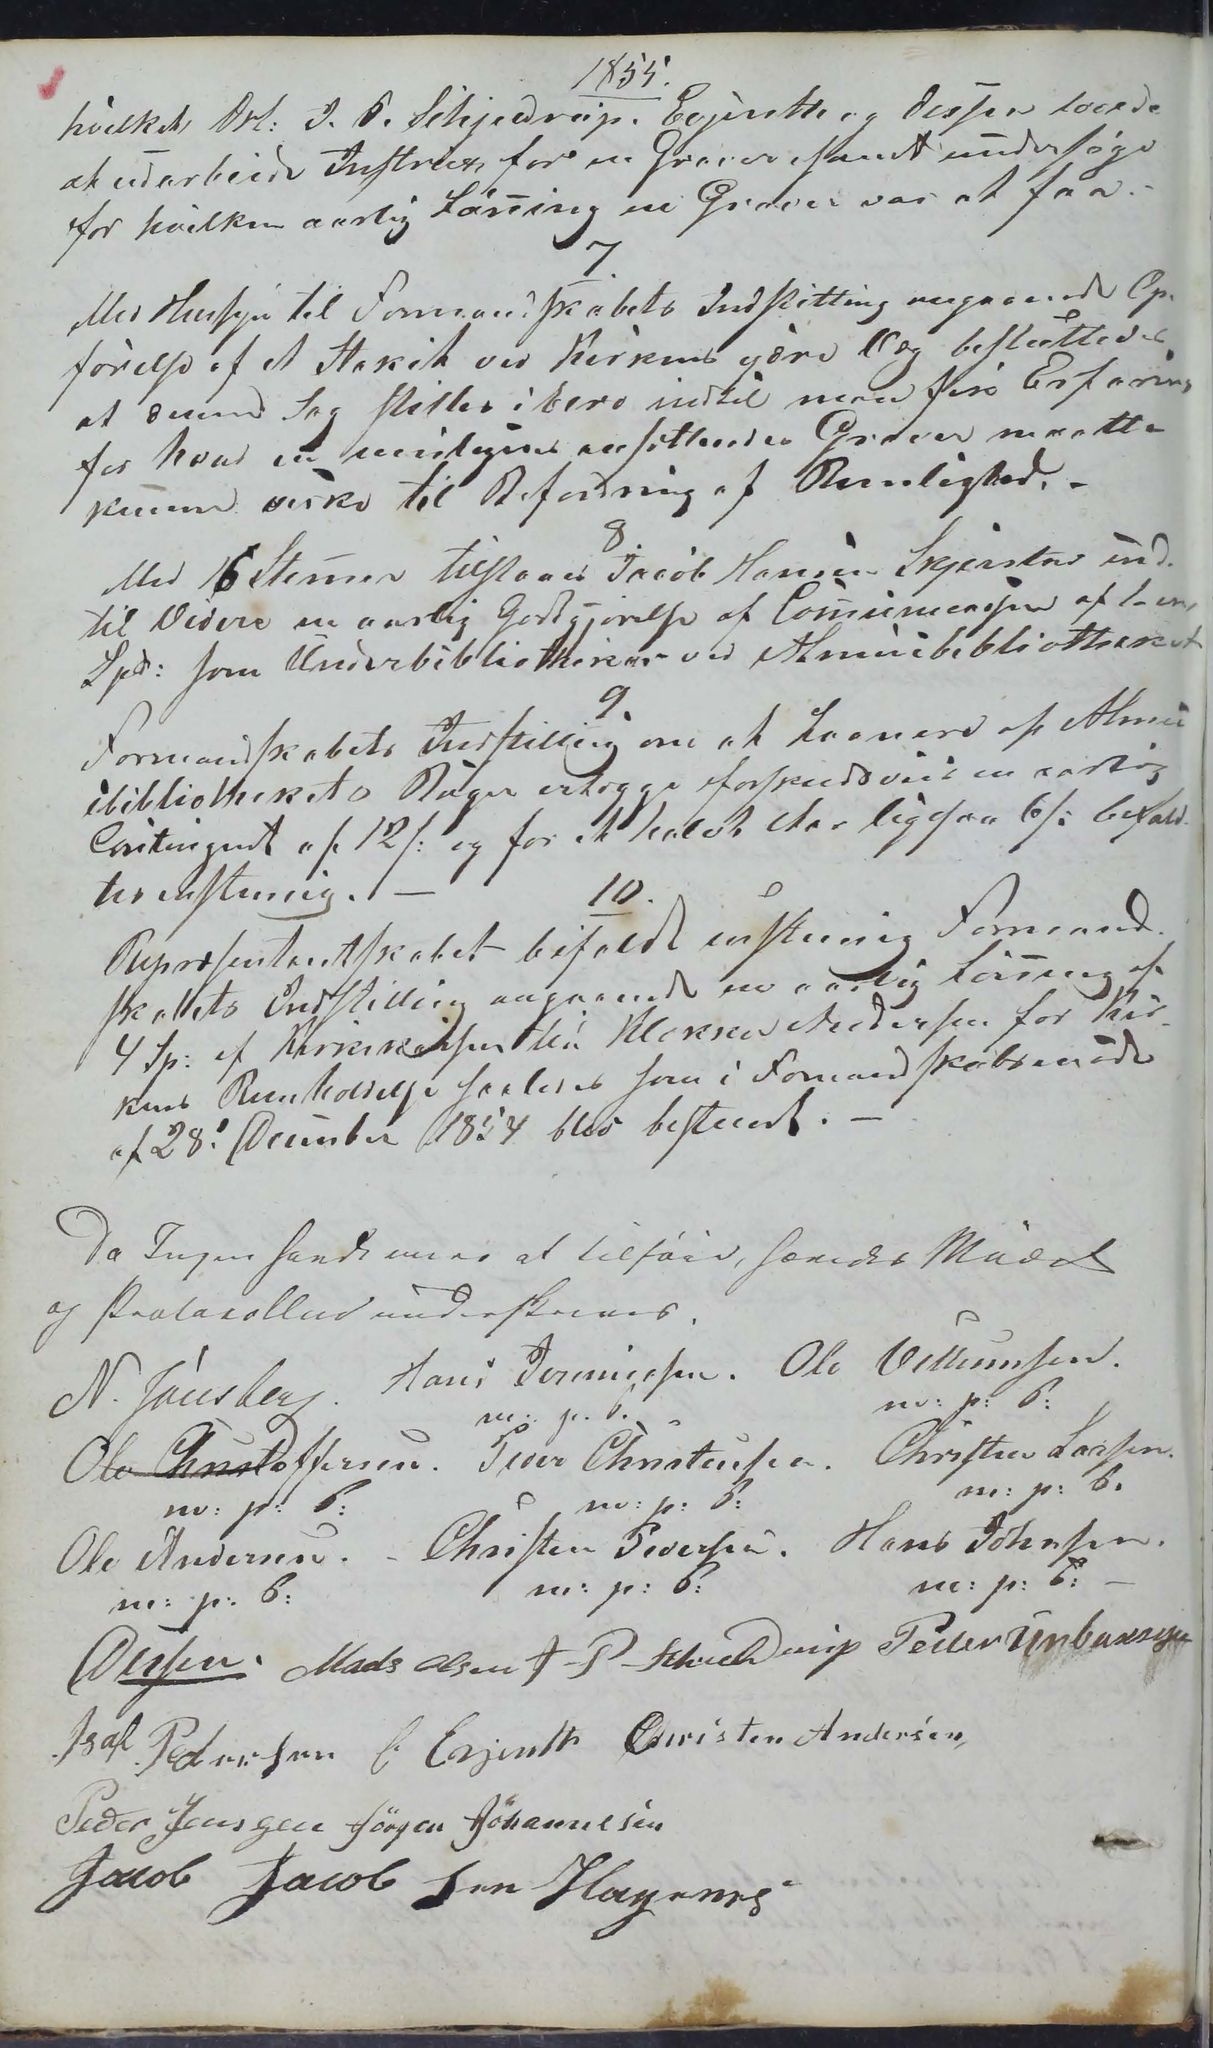 1855.
hvilket, DHl: J. P. Schjedrup. Evjenth og Dessen lovede
at udarbeide Instrux for en Graver samt undersøge
for hvilken aarlig Lønning en Graver var at faa.-
7.
Med Hensyn til Formandskabets Indstilling angaaende Op-
førelse af et Stakit ved Kirkens ydre Væg besluttedes
at denne Sag stilles i bero indtil man fik Erfaring
for hvad en muligens ansættendes Graver maatte
kunne virke til Befordring af Reenlighed. -
8.
Med 16 Stemmer tilstaaes Jacob Hansen Skjerstad ind-
til Videre en aarlig Godtgjørelse af Communecassen af 1 en
Spd: som Underbibliothekar ved Almuebibliotheket
9
Formandskabets Indstilling om at Laanere af Almue
bibliothekets Bøger erlægge forskudsviis en aarlig
Contingent af 12 s: og for et halvt Aar ligesaa 6 s: bifald-
tes enstemmig. —
10.
Repræsentantskabet bifaldt enstemmig Formand-
skabets Indstilling angaaende en aarlig Lønning af
4 Sp: af Kirkekassen til Klokker Andersen for Kir-
kens Reenholdelse saaledes som i Formandskabsmøde
af 28. December 1854 blev bestemt. —
Da Ingen fandt mere at tilføie, hævedes Mødet
og Protocollen underskreves.
N. Jönsberg. Hans Jeremiasen. Ole Villumsen.
m: p. P. m: p: P:
Ole Christoffersen. Peder Christensen. Christen Larsen.
m: p: P: m: p: P: m: p: P.
Ole Andersen. - Christen Pedersen. Hans Johnsen.
m: p. P: m: p: P: m: p: P: —
Dessen. Mads Olsen J-P-Schiedrup Peder Urbansen
Isak Pedersen C Evjenth Christen Andersen,
Peder Jensen Jörgen Johannesen
Jacob Jacob sen Hagenes